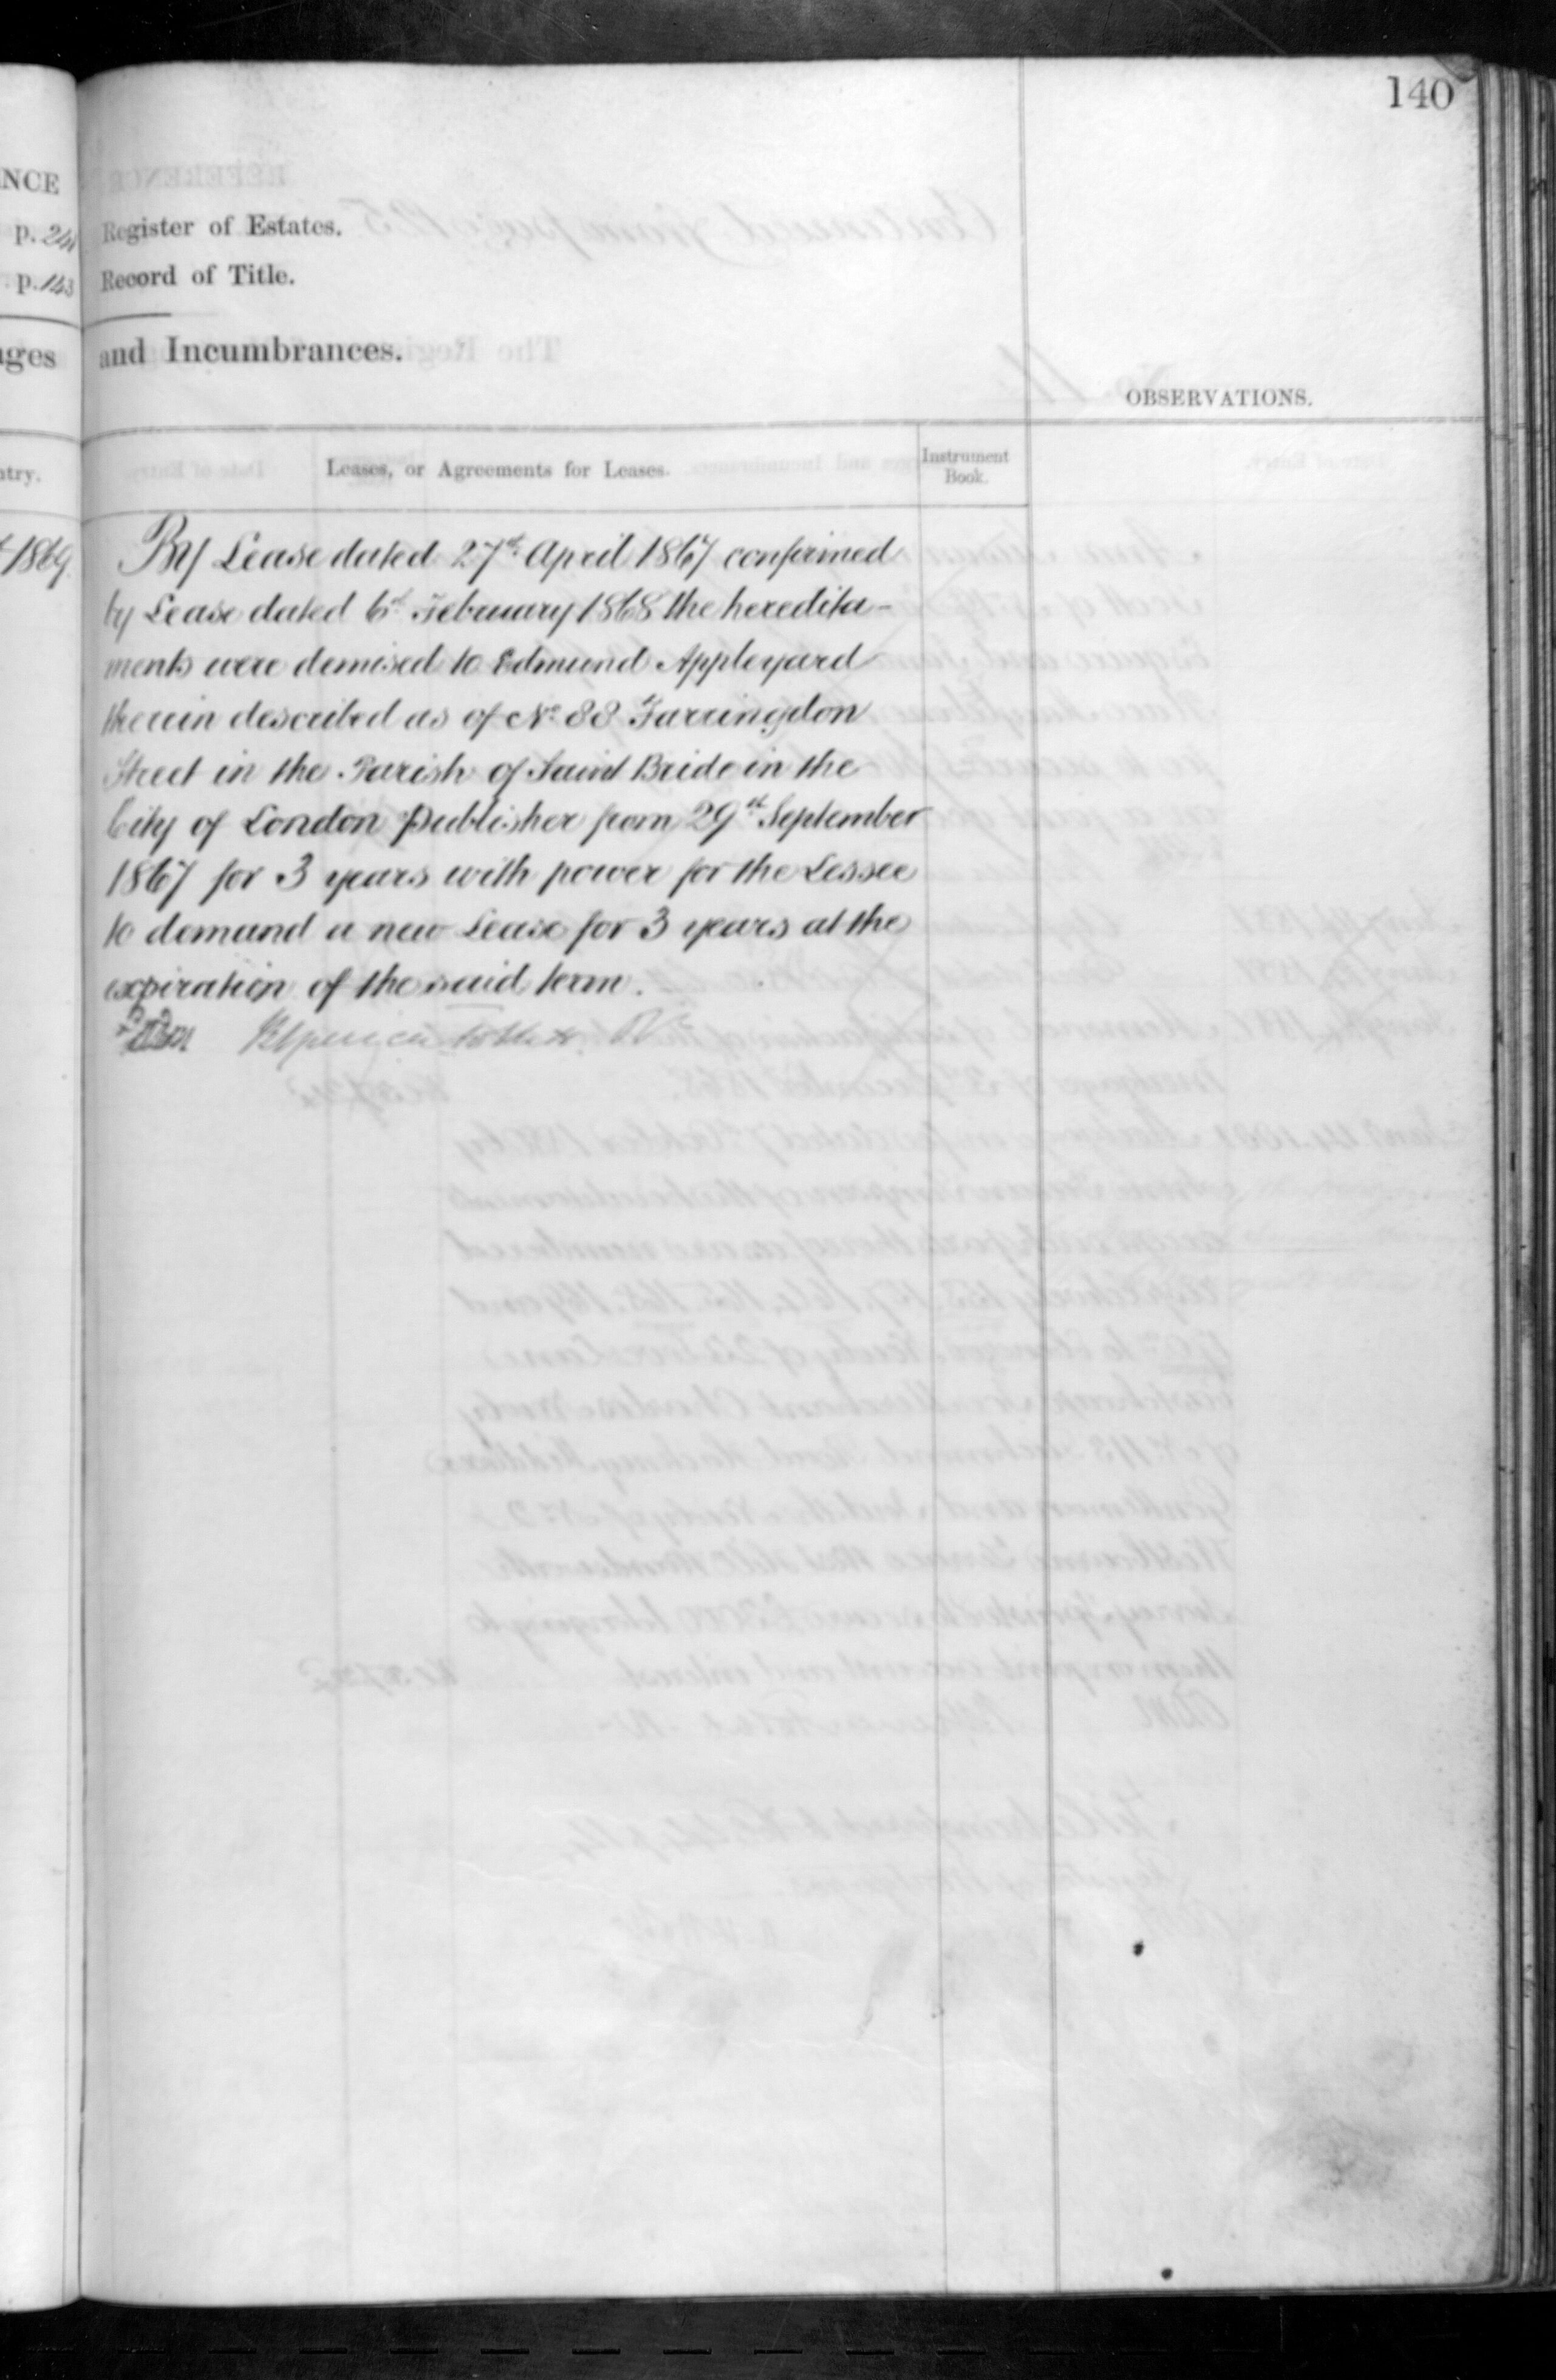 140
NCE
p. 241
p. 143
ges
ntry.
1869
Register of Estates.
Record of Title.
and Incumbrances.
OBSERVATIONS.
Leases, or Agreements for Leases.
Instrument
Book.
By Lease dated 27th April 1867 confirmed
by Lease dated 6th February 1868 the heredita-
ments were demised to Edmund Appleyard
therein described as of No 88 Farringdon
Street in the Parish of Saint Bride in the
City of London Publisher from 29th September
1867 for 3 years with power for the Lessee
to demand a new Lease for 3 years at the
expiration of the said term.